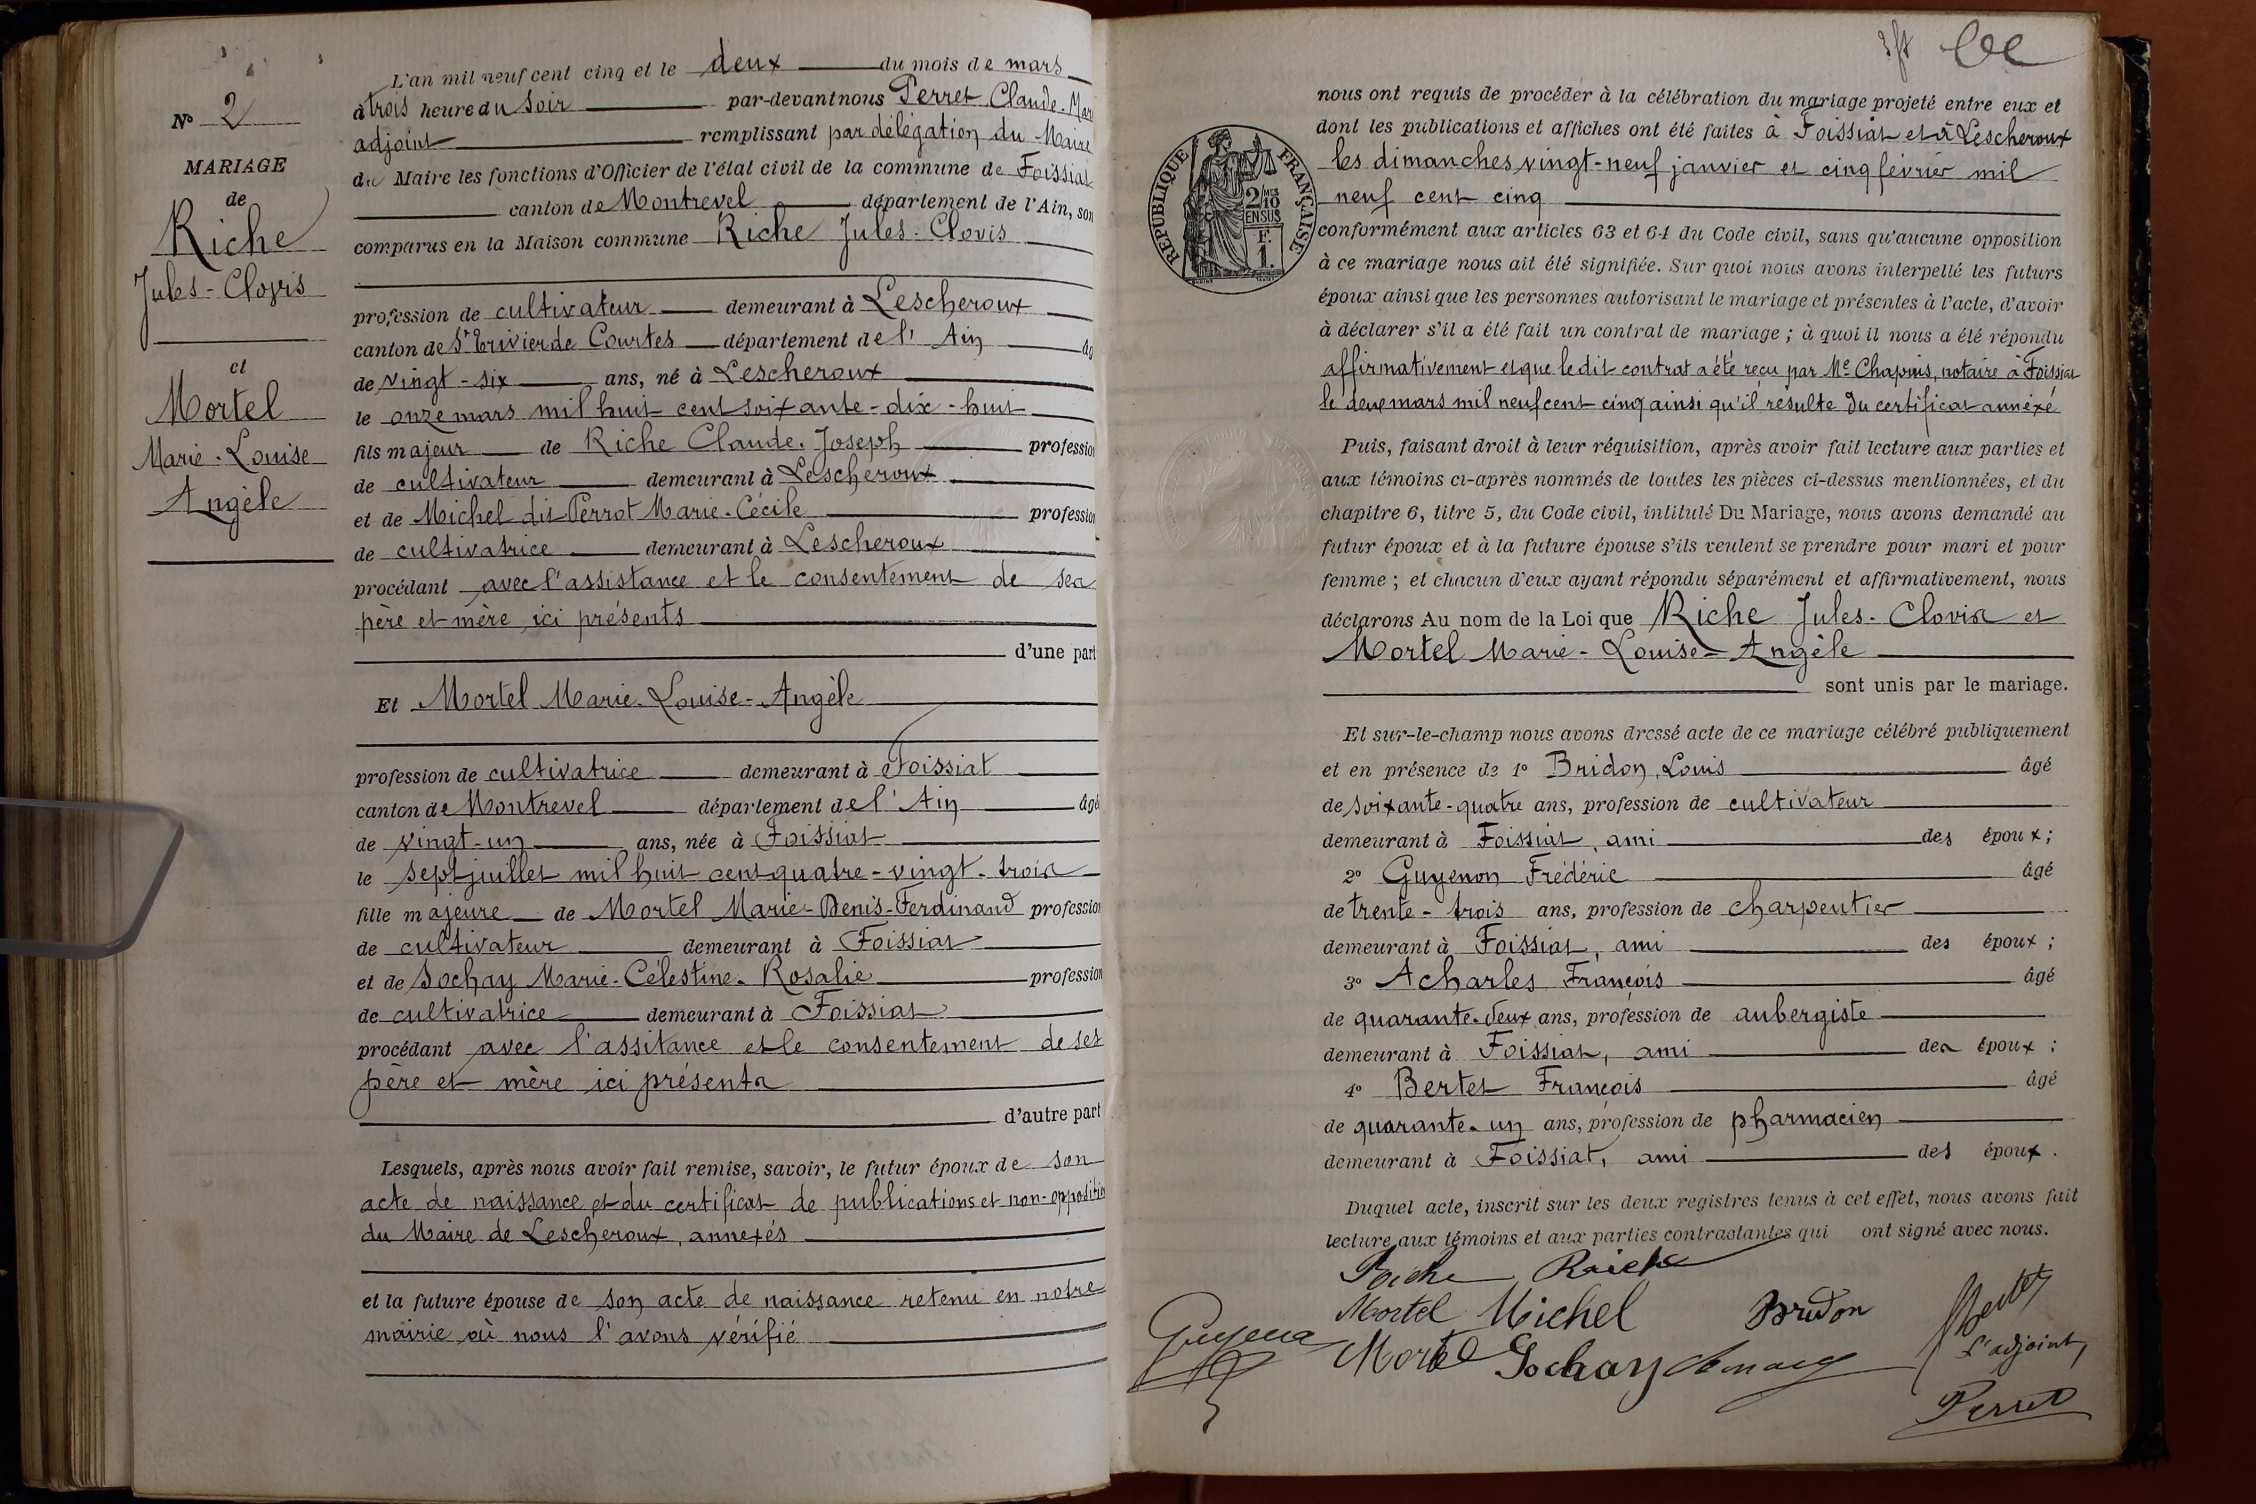 N° 2
MARIAGE
de
Riche
Jules-Clovis
et
Mortel
Marie-Louise
Angèle
L'an mil neuf cent cinq et le deux du mois de mars
à trois heure du soir par-devant nous Perret Claude-Mar
adjoint remplissant par délégation du Maire
du Maire les fonctions d'Officier de l'état civil de la commune de Foissiat
canton de Montrevel département de l'Ain, son
comparus en la Maison commune Riche Jules-Clovis
profession de cultivateur demeurant à Lescheroux
canton de St Trivier de Courtes département de l'Ain âg
de vingt-six ans, né à Lescheroux
le onze mars mil huit cent soixante-dix-huit
fils majeur de Riche Claude-Joseph profession
de cultivateur demeurant à Lescheroux
et de Michel dit Perrot Marie-Cécile profession
de cultivatrice demeurant à Lescheroux
procédant avec l'assistance et le consentement de ses
père et mère ici présents
d'une part
Et Mortel Marie-Louise-Angèle
profession de cultivatrice demeurant à Foissiat
canton de Montrevel département de l'Ain âgé
de vingt-un ans, née à Foissiat
le sept juillet mil huit cent quatre-vingt-trois
fille majeure de Mortel Marie-Denis-Ferdinand profession
de cultivateur demeurant à Foissiat
et de Sochay Marie-Célestine-Rosalie profession
de cultivatrice demeurant à Foissiat
procédant avec l'assitance et le consentement de ses
père et mère ici présents
d'autre part
Lesquels, après nous avoir fait remise, savoir, le futur époux de son
acte de naissance et du certificat de publications et non-opposition
du Maire de Lescheroux, annexés
et la future épouse de son acte de naissance retenu en notre
mairie où nous l'avons vérifié
nous ont requis de procéder à la célébration du mariage projeté entre eux et
dont les publications et affiches ont été faites à Foissiat et à Lescheroux
les dimanches vingt-neuf janvier et cinq février mil
neuf cent cinq
conformément aux articles 63 et 64 du Code civil, sans qu'aucune opposition
à ce mariage nous ait été signifiée. Sur quoi nous avons interpellé les futurs
époux ainsi que les personnes autorisant le mariage et présentes à l'acte, d'avoir
à déclarer s'il a été fait un contrat de mariage ; à quoi il nous a été répondu
affirmativement et que le dit contrat a été reçu par Me Chapuis, notaire à Foissiat
le deux mars mil neuf cent cinq ainsi qu'il résulte du certificat annéxé
Puis, faisant droit à leur réquisition, après avoir fait lecture aux parties et
aux témoins ci-après nommés de toutes les pièces ci-dessus mentionnées, et du
chapitre 6, titre 5, du Code civil, intitulé Du Mariage, nous avons demandé au
futur époux et à la future épouse s'ils veulent se prendre pour mari et pour
femme ; et chacun d'eux ayant répondu séparément et affirmativement, nous
déclarons Au nom de la Loi que Riche Jules-Clovis et
Mortel Marie-Louise-Angèle
sont unis par le mariage.
Et sur-le-champ nous avons dressé acte de ce mariage célébré publiquement
et en présence de 1° Bridon, Louis âgé
de soixante-quatre ans, profession de cultivateur
demeurant à Foissiat, ami des époux ;
2° Guyenon Frédéric âgé
de trente-trois ans, profession de charpentier
demeurant à Foissiat, ami des époux ;
3° Acharles François âgé
de quarante-deux ans, profession de aubergiste
demeurant à Foissiat, ami des époux ;
4° Bertet François âgé
de quarante-un ans, profession de pharmacien
demeurant à Foissiat, ami des époux.
Duquel acte, inscrit sur les deux registres tenus à cet effet, nous avons fait
lecture aux témoins et aux parties contractantes qui ont signé avec nous.
Riche Riche
Mortel Michel Bridon Bertet
Mortel Sochay l'adjoint,
Perret
REPUBLIQUE FRANÇAISE
2/10 MES
EN SUS
F.
1.